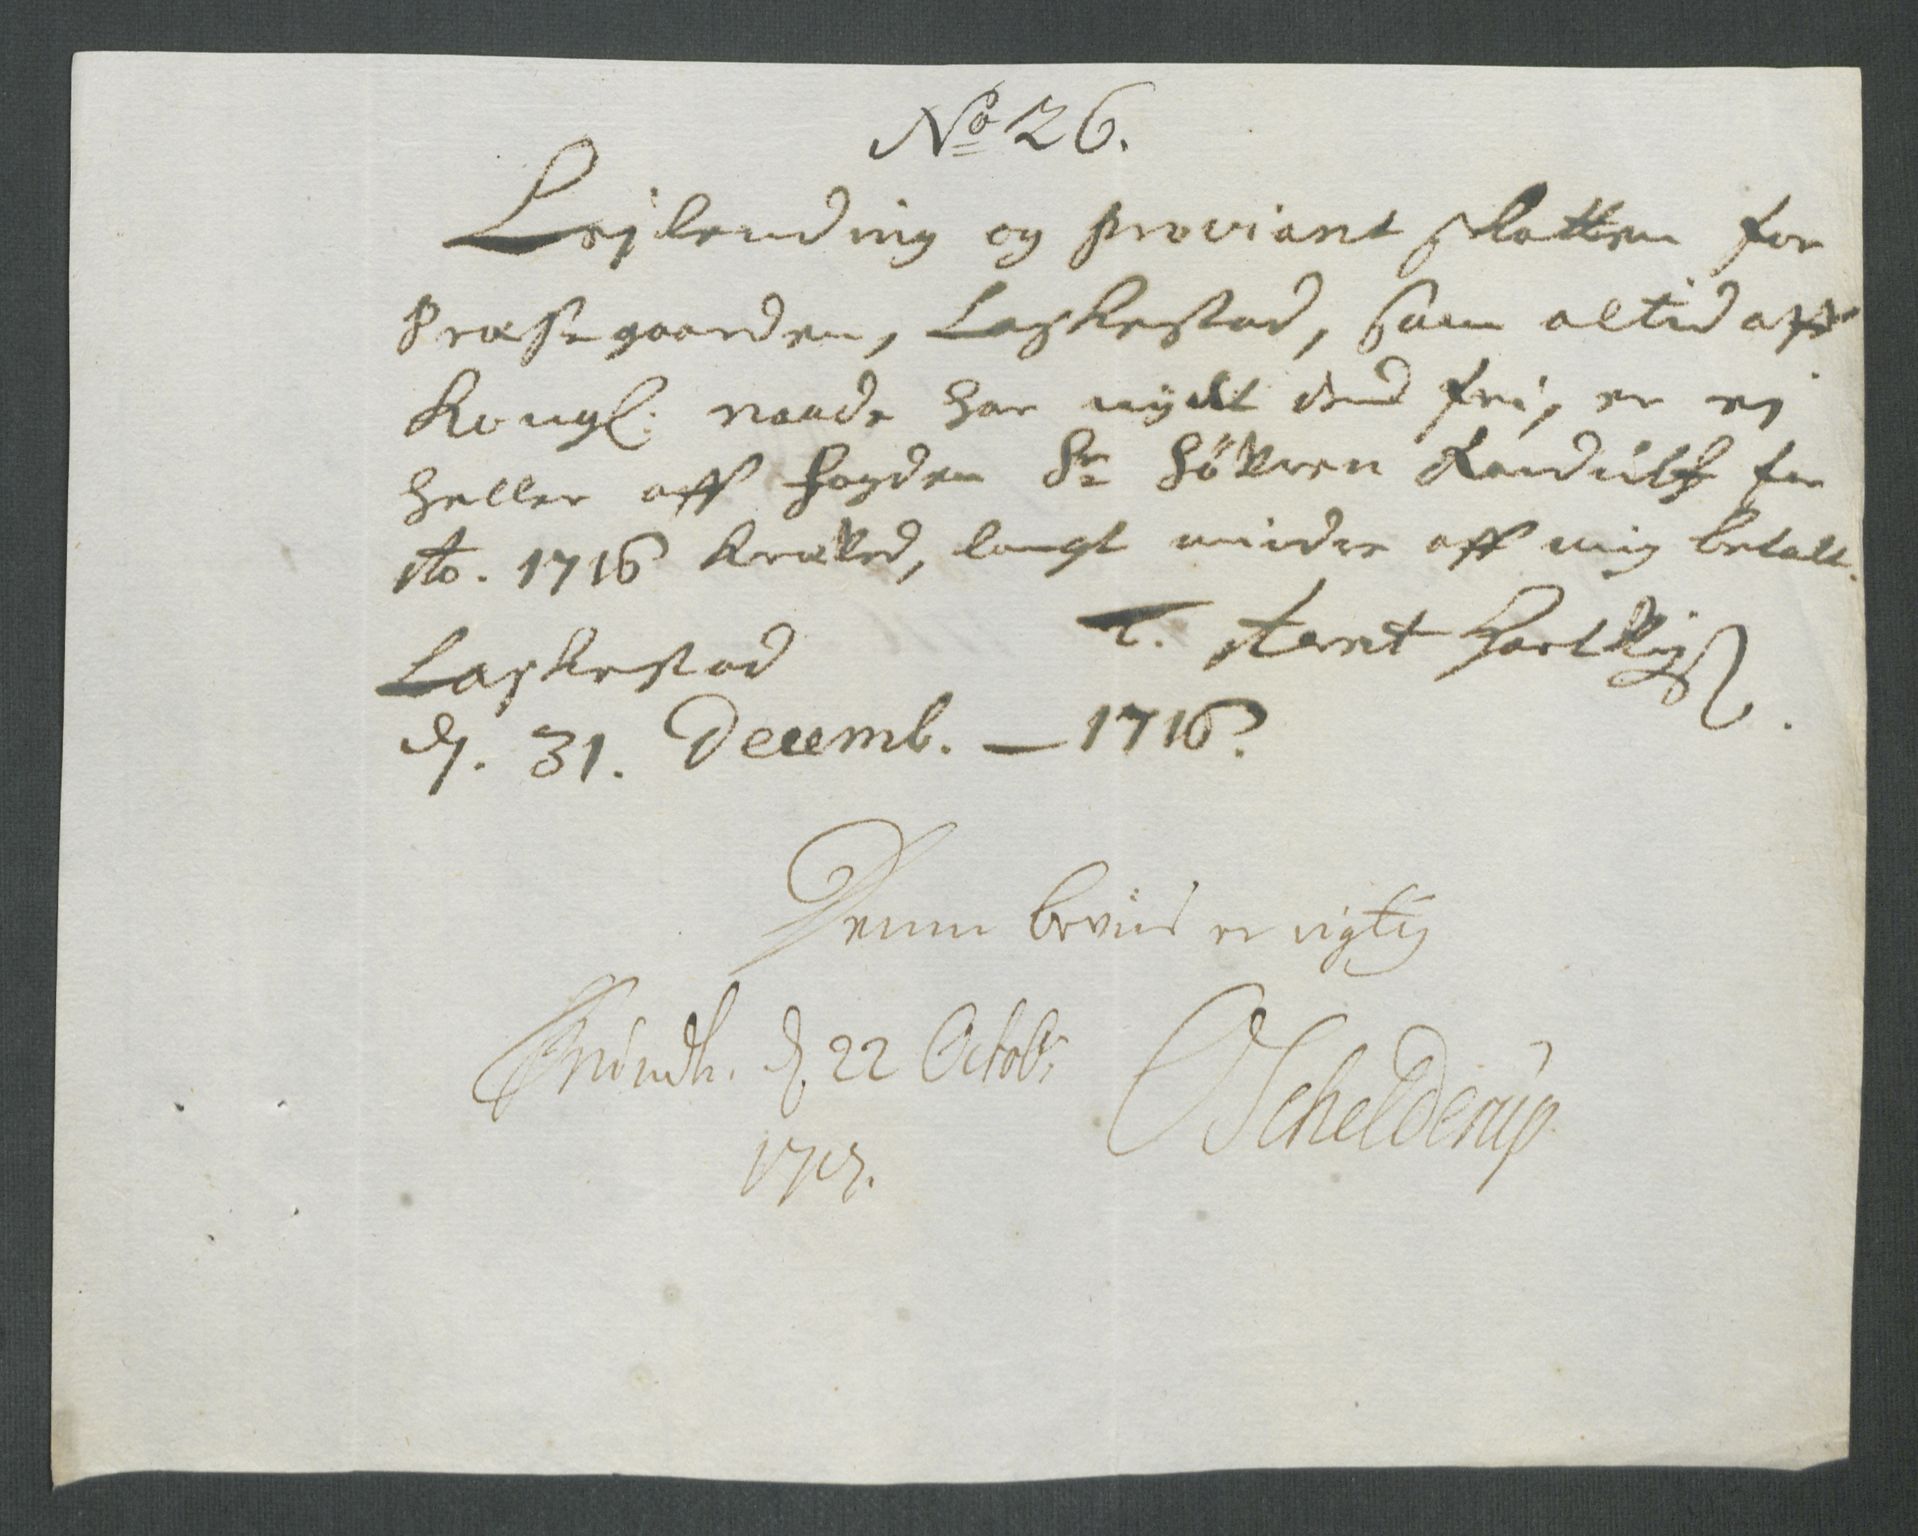 No 26.
Lejlending og proviant skatten for
Præstegaarden, Laskestad, som altid aff
Kongl: naade har nydt dend fri, er ej
heller aff fogden Sr Søfren Randulff for
Ao. 1716 kræved, langt mindre aff mig betalt.
Laskestad T. Aernt Hartvigs
d. 31. Decemb. – 1716.
Denne beviis er rigtig
Trondh. d. 22 Octobr
1717. OSchelderup